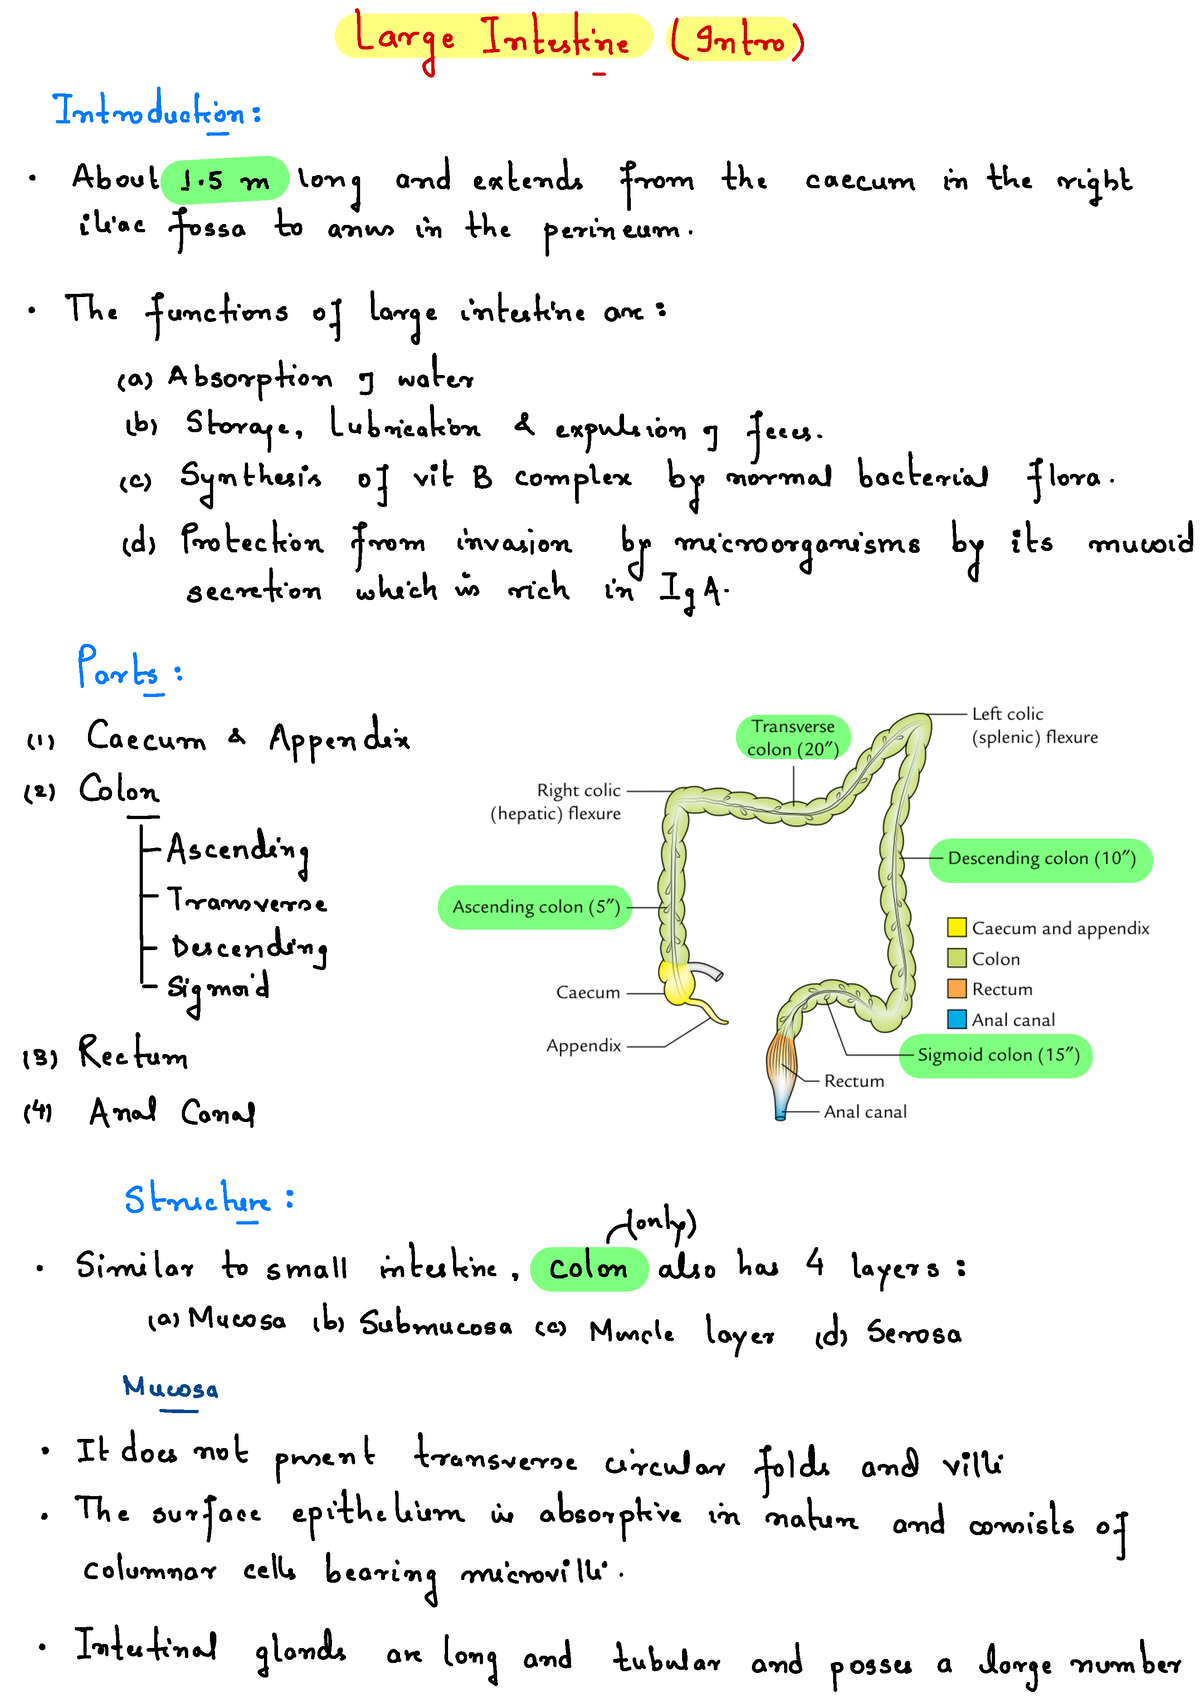 Large Intestine (Intro)
Introduction:
• About 1.5 m long and extends from the caecum in the right
iliac fossa to anus in the perineum.
• The functions of large intestine are:
(a) Absorption of water
(b) Storage, Lubrication & expulsion of feces.
(c) Synthesis of vit B complex by normal bacterial flora.
(d) Protection from invasion by microorganisms by its mucoid
secretion which is rich in IgA.
Parts:
(1) Caecum & Appendix
(2) Colon
Ascending
Transverse
Descending
Sigmoid
(3) Rectum
(4) Anal Canal
Transverse
colon (20″)
Left colic
(splenic) flexure
Right colic
(hepatic) flexure
Descending colon (10″)
Ascending colon (5″)
Caecum and appendix
Colon
Rectum
Anal canal
Caecum
Appendix
Sigmoid colon (15″)
Rectum
Anal canal
Structure:
(only)
• Similar to small intestine, colon also has 4 layers:
(a) Mucosa (b) Submucosa (c) Muscle layer (d) Serosa
Mucosa
• It does not present transverse circular folds and villi
• The surface epithelium is absorptive in nature and consists of
columnar cells bearing microvilli.
• Intestinal glands are long and tubular and posses a large number